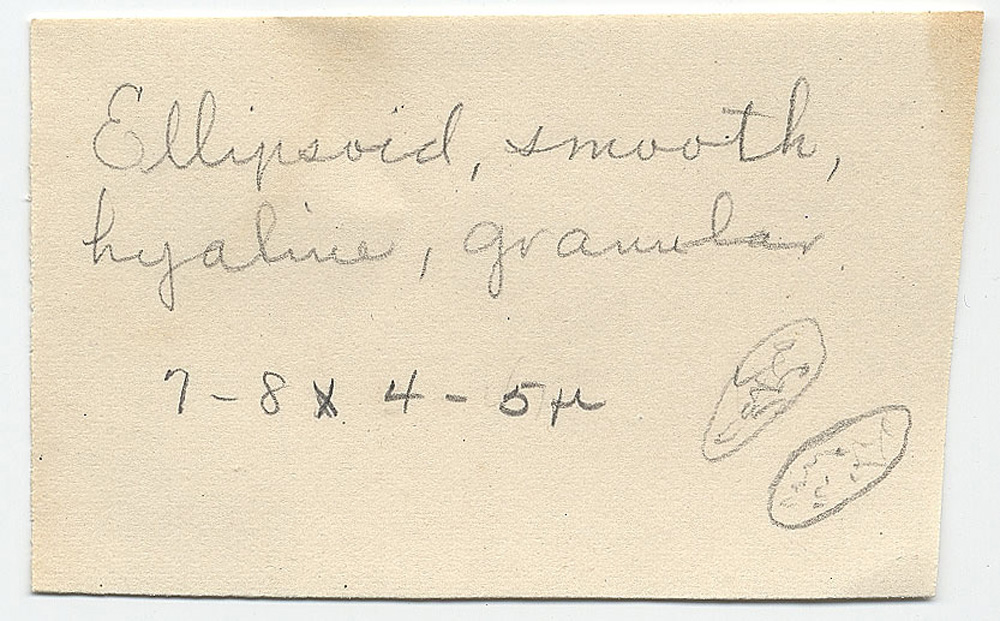 Ellipsoid, smooth,
hyaline, granular.
7-8 x 4-5µ